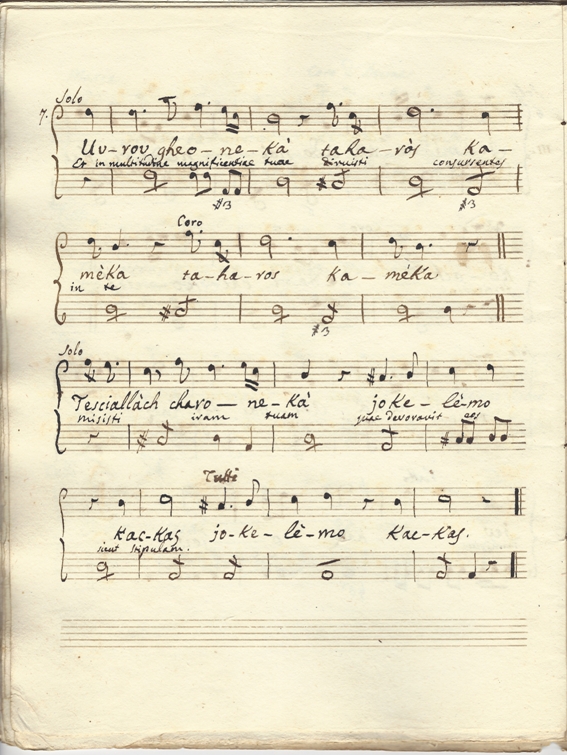 Solo
7.
Uv-rov gheo-ne-kà taha-ròs ka-
Et in multitudine magnificentiae tuae diruisti consurgentes
#3
Coro
mèka ta-ha-ros ka-mèka
in te
#3
Solo
Tesciallàch charo-ne-kà jo ke-lè-mo
misisti iram tuam quae devoravit eos
Tutti
kac-kas jo-ke-lè-mo kac-kas.
sicut stipulam.